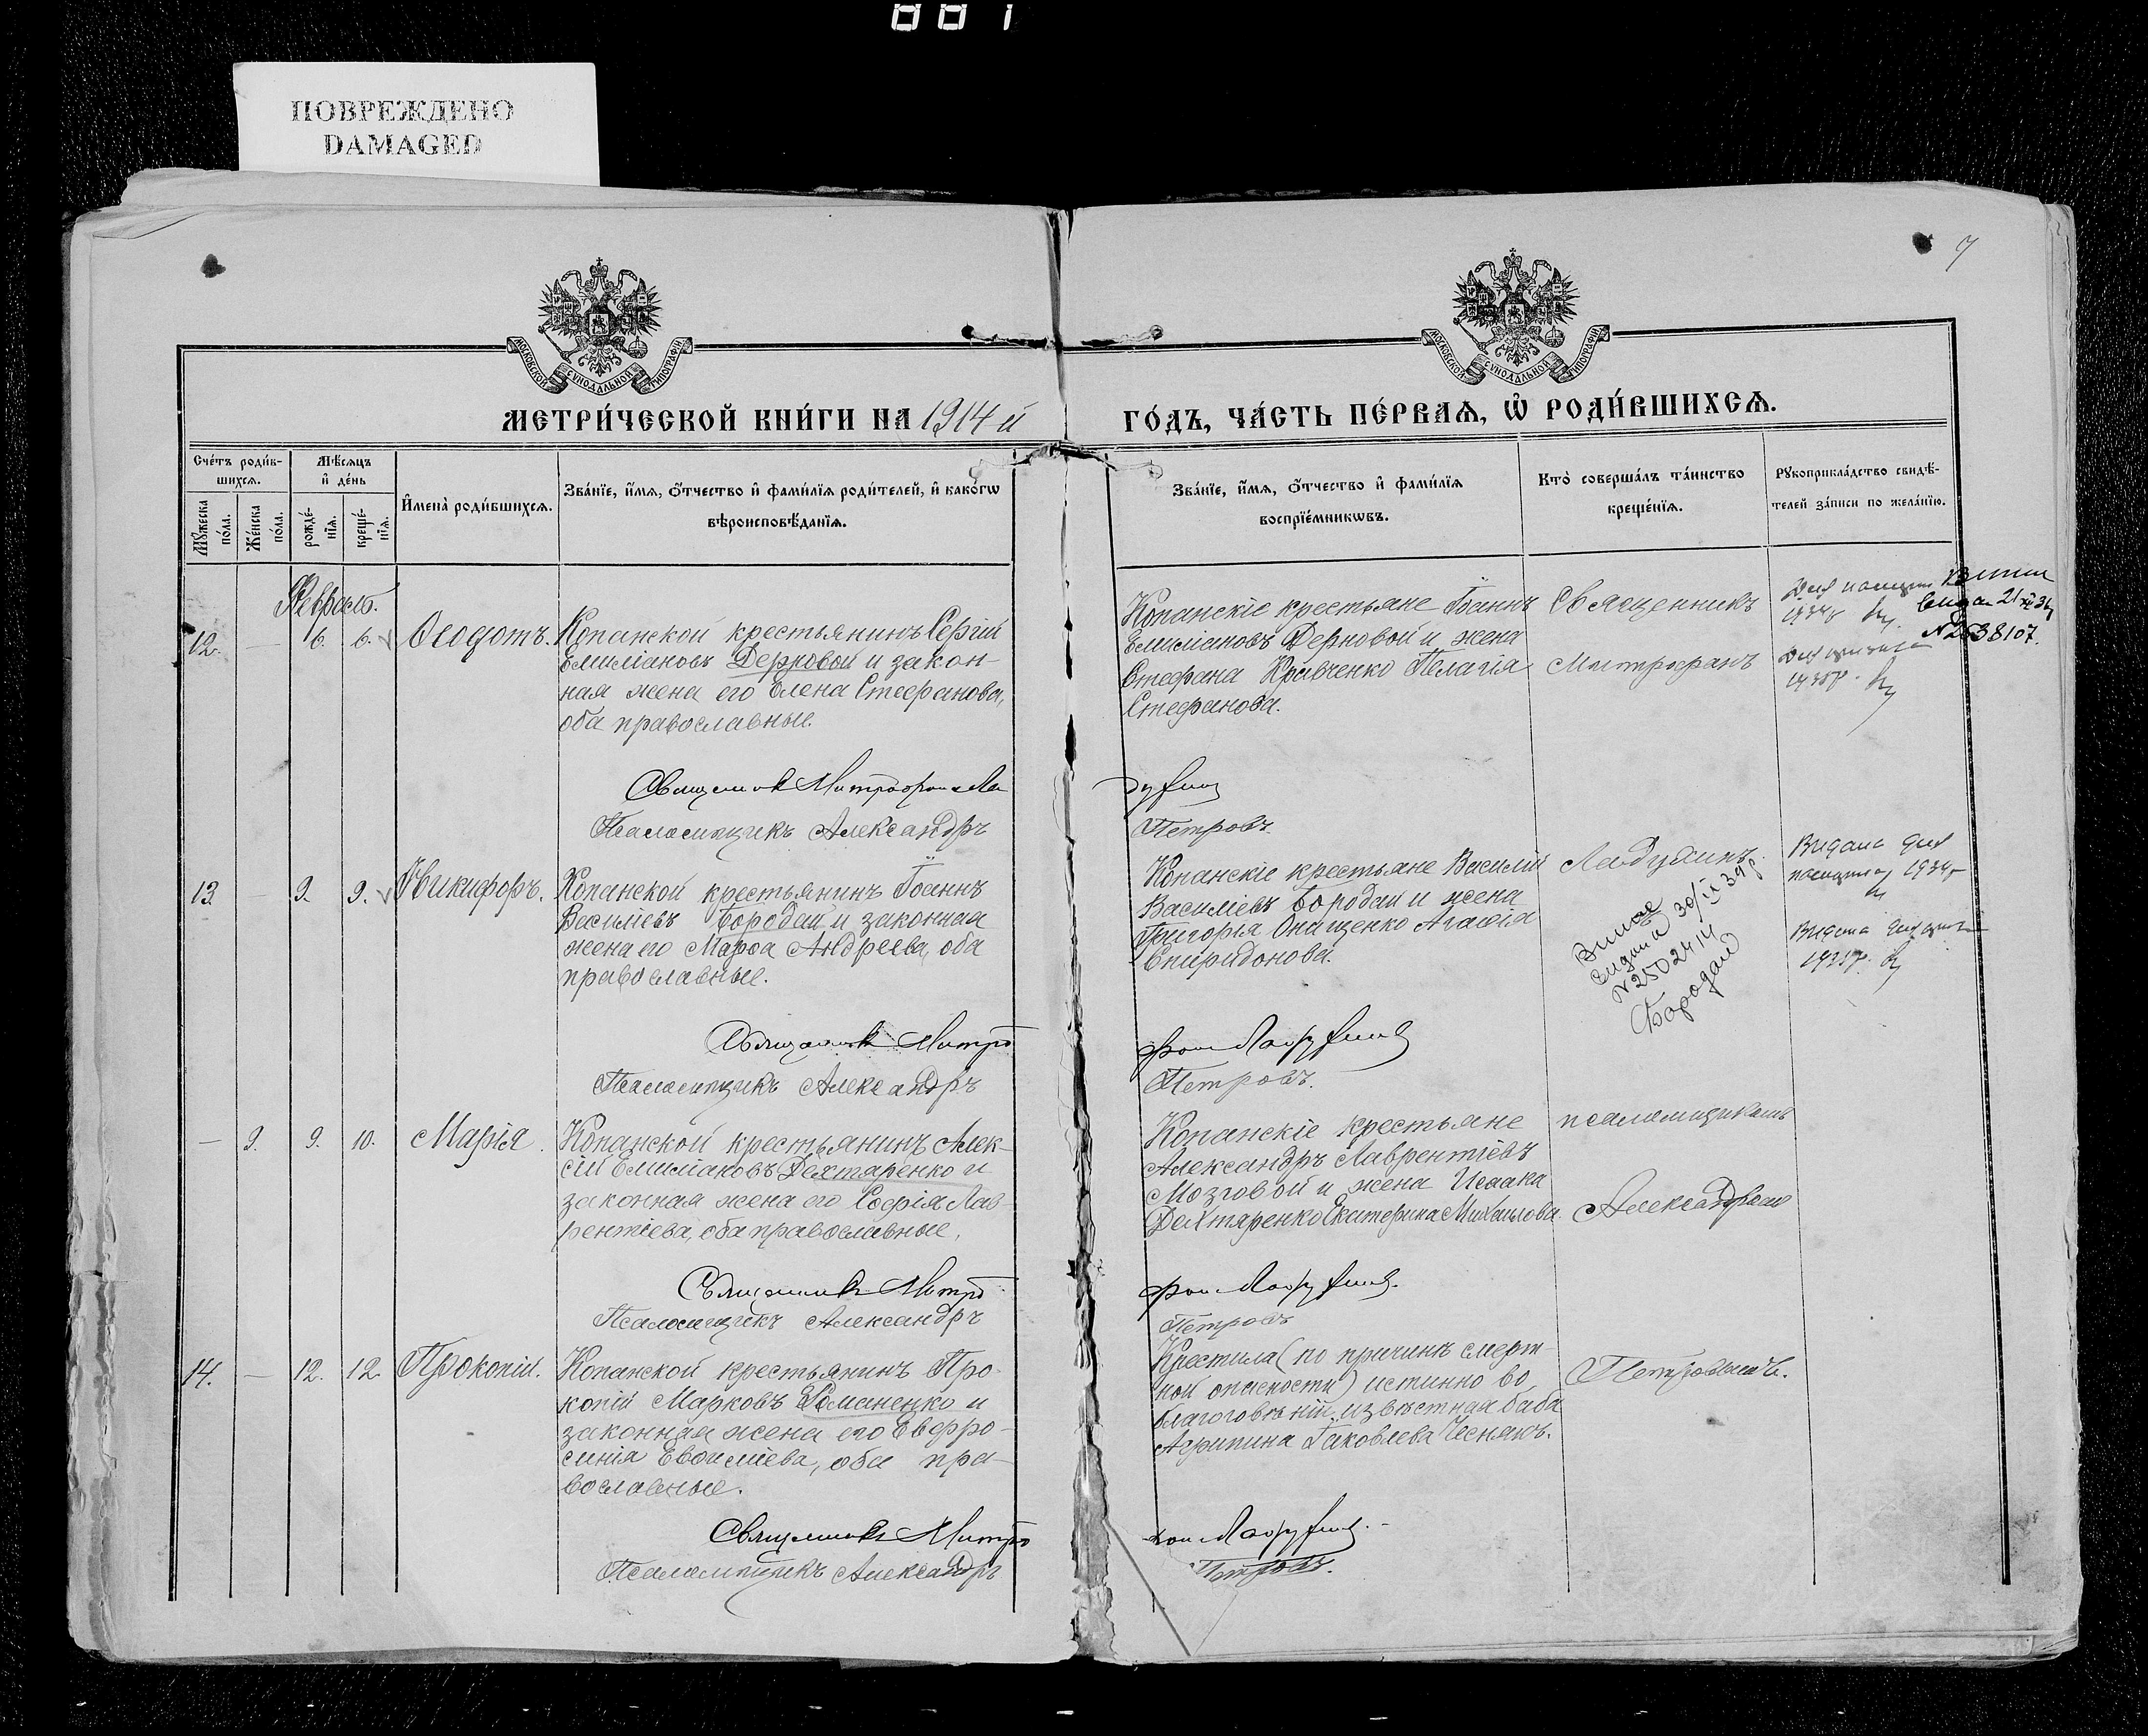 001
ПОВРЕЖДЕНО
DAMAGED
7
МОСКОВСКОЙ СѴНОДАЛЬНОЙ ТИПОГРАФІИ
МОСКОВСКОЙ СѴНОДАЛЬНОЙ ТИПОГРАФІИ
МЕТРИ́ЧЕСКОЙ КНИ́ГИ НА 1914 й
ГО́ДЪ, ЧА́СТЬ ПЕ́РВАѦ, Ѽ РОДИ́ВШИХСѦ.
Сче́тъ роди́в-
шихсѧ.
Мꙋ́жеска
по́ла.
Же́нска
по́ла.
Мѣ́сѧцъ
и҆ де́нь
рожде́-
нїѧ.
креще́-
нїѧ.
И҆мена̀ роди́вшихсѧ.
Зва́нїе, и҆́мѧ, ѻ҆́тчество и҆ фами́лїѧ роди́телей, и҆ како́гѡ
вѣроисповѣ́данїѧ.
Зва́нїе, и҆́мѧ, ѻ҆́тчество и҆ фами́лїѧ
воспрїе́мникѡвъ.
Кто̀ соверша́лъ та́инство
креще́нїѧ.
Рꙋкоприкла́дство свидѣ́-
телей за́писи по жела́нїю.
Февраль.
12. — 6. 6. Ѳеодотъ. Копанской крестьянинъ Сергій
Емиліановъ Дерновой и закон-
ная жена его Елена Стефанова,
оба православные.
Священник Митрофан Ла
Псаломщикъ Александръ
Копанскіе крестьяне Іоаннъ
Емиліановъ Дерновой и жена
Стефана Кравченко Пелагія
Стефанова.
Петровъ.
Священникъ
Митрофанъ
1934
N 2538107.
13. — 9. 9. Никифоръ. Копанской крестьянинъ Іоаннъ
Василіевъ Бородай и законная
жена его Марѳа Андреева, оба
православные.
Священник Митро
Псаломщикъ Александръ
Копанскіе крестьяне Василій
Василіевъ Бородай и жена
Григорія Онищенко Агаѳія
Спиридонова.
фан
Петровъ.
Видана
N 2502414
Бородай
Видана для
1934
Видана
— 9. 9. 10. Марія. Копанской крестьянинъ Алек-
сій Емиліановъ Дехтяренко и
законная жена его Софія Лав-
рентіева, оба православные,
Священник Митро
Псаломщикъ Александръ
Копанскіе крестьяне
Александръ Лаврентіевъ
Мозговой и жена Исаака
Дехтяренко Екатерина Михаилова.
фан
Петровъ
псаломщикомъ
Александромъ
14. — 12. 12. Прокопій. Копанской крестьянинъ Про-
копій Марковъ Романенко и
законная жена его Евфро-
синія Евѳиміева, оба пра-
вославные.
Священник Митро
Псаломщикъ Александръ
Крестила (по причинѣ смерт-
ной опасности) истинно во
благоговѣніи извѣстная баба
Агрипина Іаковлева Чеснякъ.
фан
Петровъ.
Петровымъ.